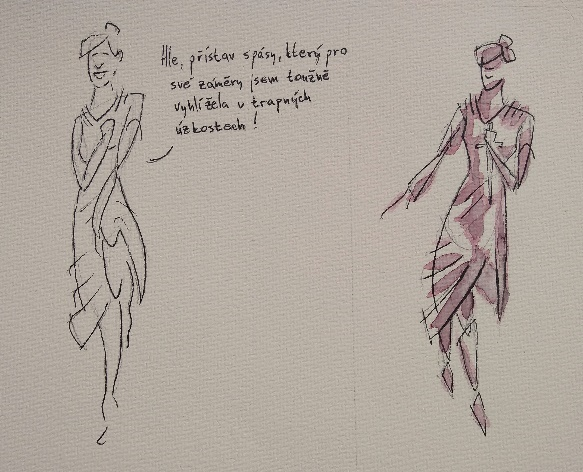 Hle, přístav spásy, který pro
své záměry jsem toužně
vyhlížela v trapných
úzkostech!